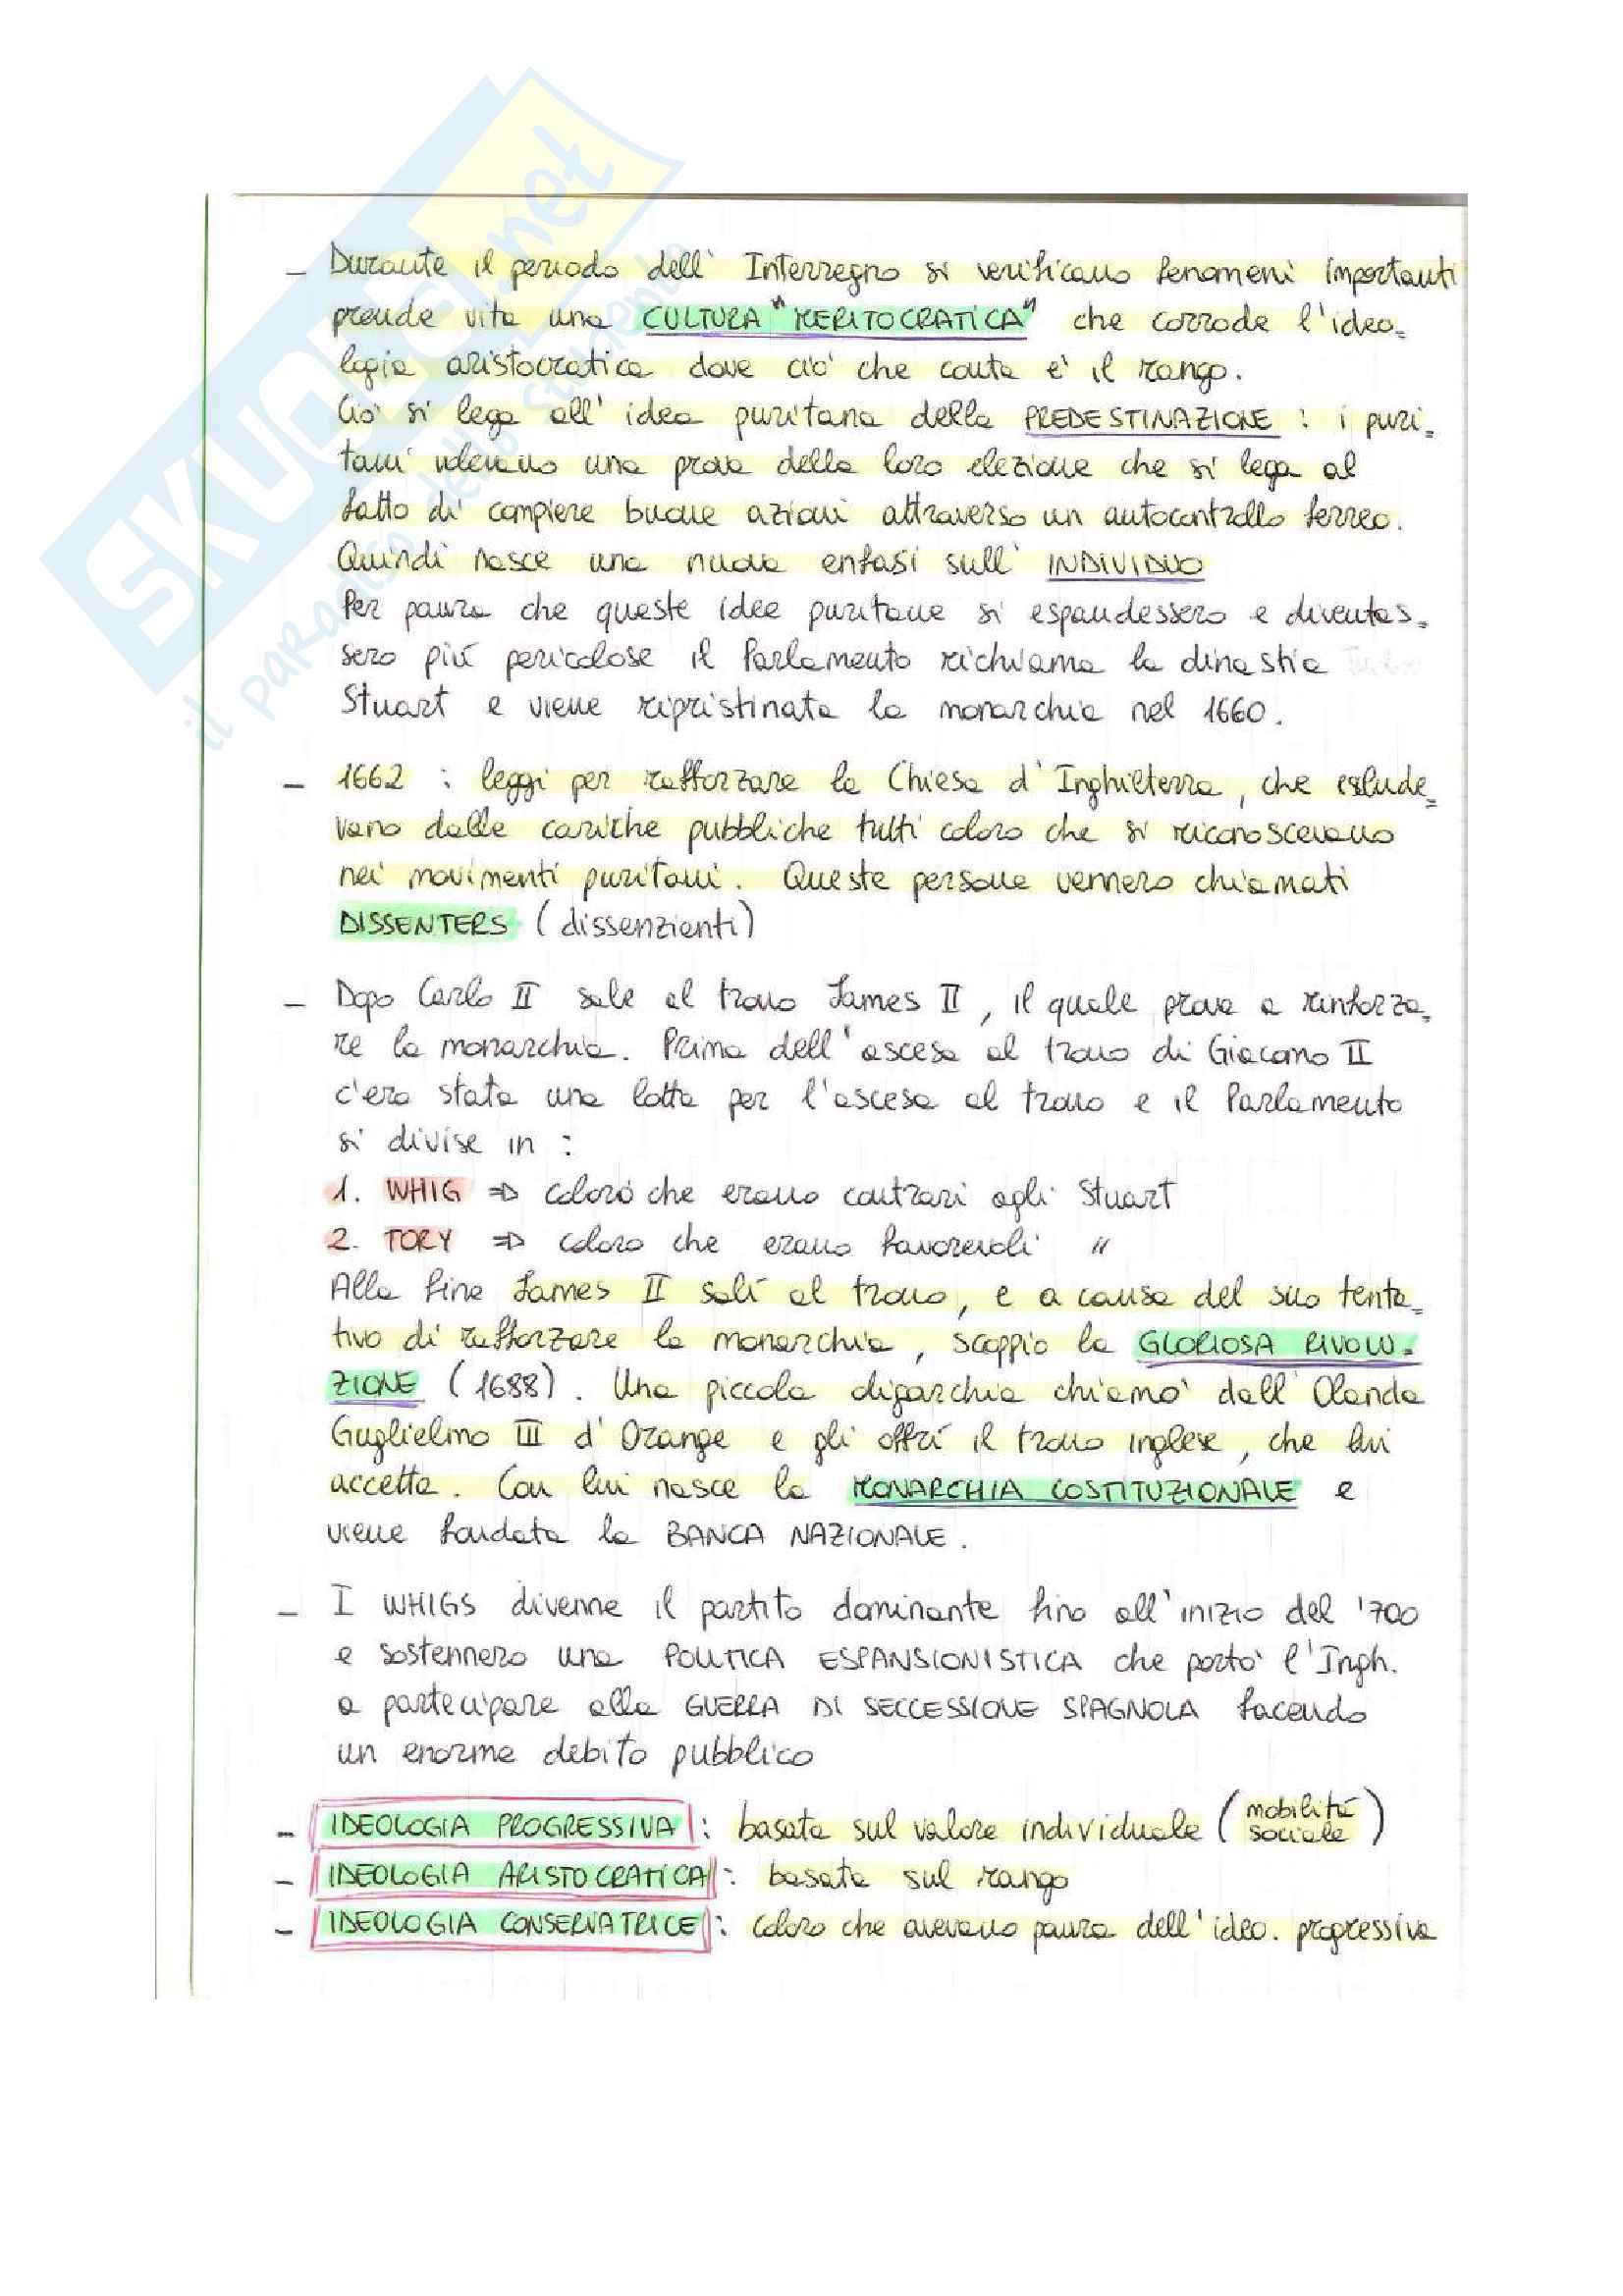 SKUOLA.net
il paradiso dello studente
– Durante il periodo dell' Interregno si verificano fenomeni importanti
prende vita una CULTURA "MERITOCRATICA" che corrode l'ideo=
logia aristocratica dove ciò che conta è il rango.
Ciò si lega all' idea puritana della PREDESTINAZIONE : i puri=
tani volevano una prova della loro elezione che si lega al
fatto di compiere buone azioni attraverso un autocontrollo ferreo.
Quindi nasce una nuova enfasi sull' INDIVIDUO
Per paura che queste idee puritane si espandessero e diventas=
sero più pericolose il Parlamento richiama la dinastia
Stuart e viene ripristinata la monarchia nel 1660.
– 1662 : leggi per rafforzare la Chiesa d'Inghilterra, che esclude=
vano dalle cariche pubbliche tutti coloro che si riconoscevano
nei movimenti puritani. Queste persone vennero chiamati
DISSENTERS (dissenzienti)
– Dopo Carlo II sale al trono James II, il quale prova a rinforza=
re la monarchia. Prima dell'ascesa al trono di Giacomo II
c'era stata una lotta per l'ascesa al trono e il Parlamento
si divise in :
1. WHIG ⇒ coloro che erano contrari agli Stuart
2. TORY ⇒ coloro che erano favorevoli "
Alla fine James II salì al trono, e a causa del suo tenta=
tivo di rafforzare la monarchia, scoppio la GLORIOSA RIVOLU=
ZIONE (1688). Una piccola oligarchia chiamò dall' Olanda
Guglielmo III d' Orange e gli offrì il trono inglese, che lui
accetta. Con lui nasce la MONARCHIA COSTITUZIONALE e
viene fondata la BANCA NAZIONALE.
– I WHIGS divenne il partito dominante fino all'inizio del '700
e sostennero una POLITICA ESPANSIONISTICA che portò l'Ingh.
a partecipare alla GUERRA DI SECCESSIONE SPAGNOLA facendo
un enorme debito pubblico
– IDEOLOGIA PROGRESSIVA : basata sul valore individuale (mobilità sociale)
– IDEOLOGIA ARISTOCRATICA : basata sul rango
– IDEOLOGIA CONSERVATRICE : coloro che avevano paura dell'ideo. progressiva